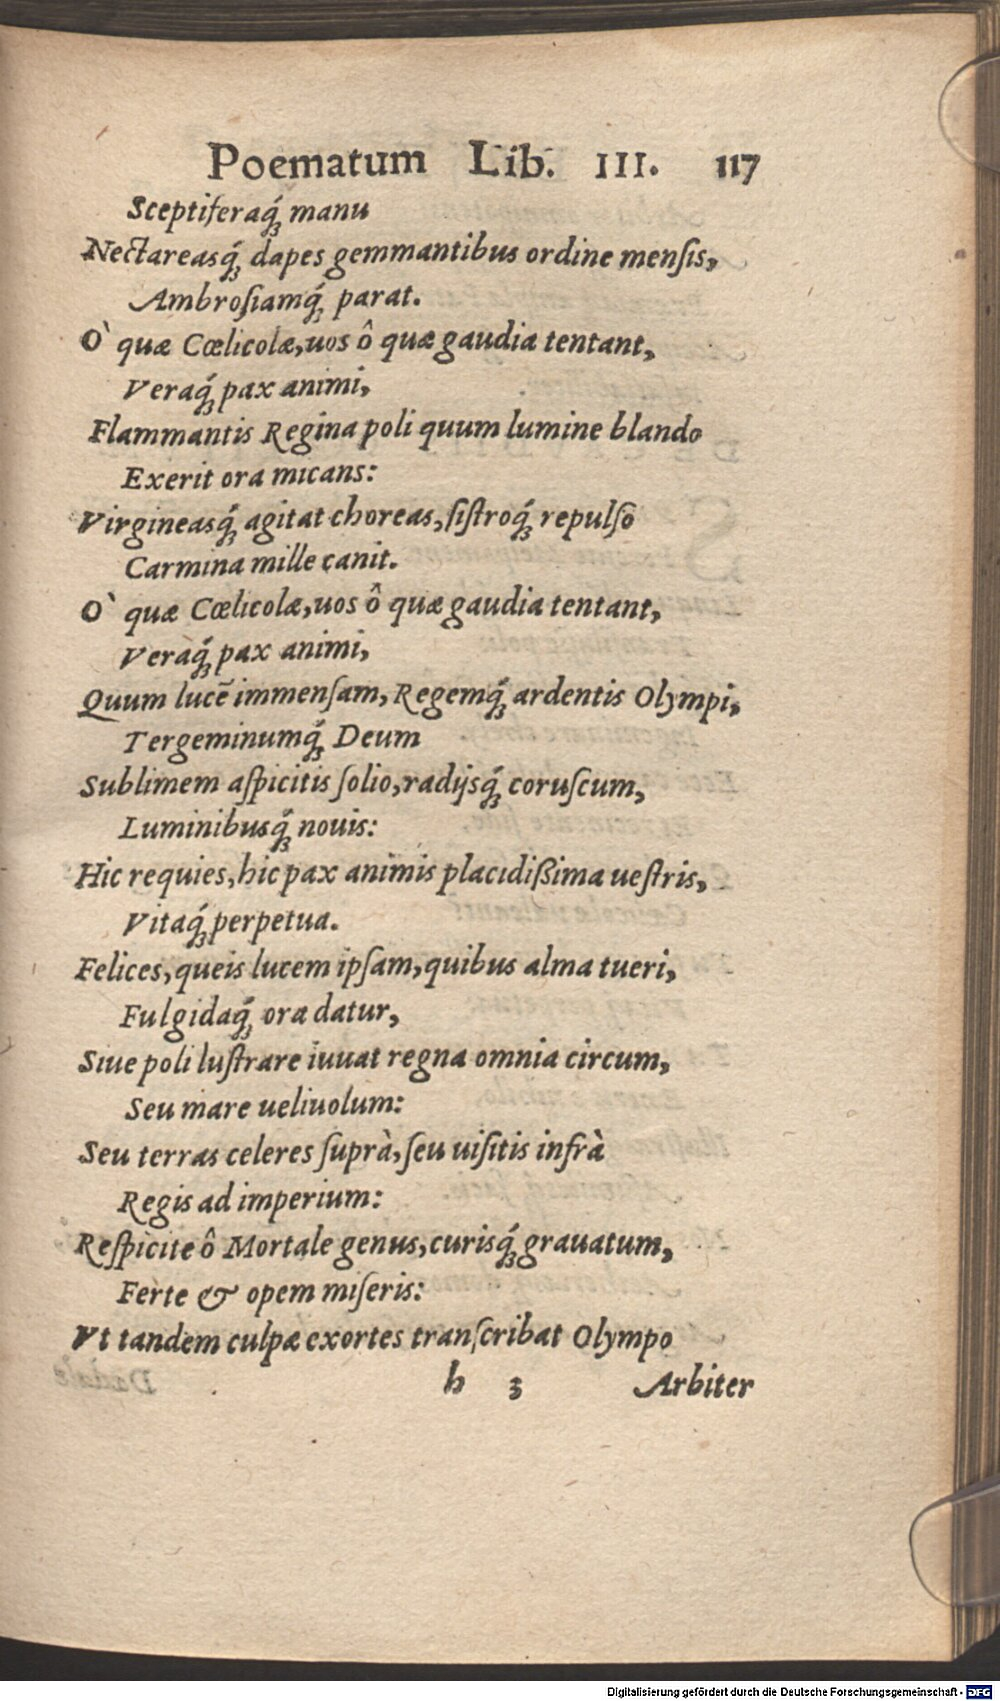 Poematum Lib. III. 117
Sceptiferaq́; manu
Nectareasq́; dapes gemmantibus ordine menſis,
Ambroſiamq́; parat.
O` quæ Cœlicolæ, uos ô quæ gaudia tentant,
Veraq́; pax animi,
Flammantis Regina poli quum lumine blando
Exerit ora micans:
Virgineasq́; agitat choreas, ſiſtroq́; repulſo
Carmina mille canit.
O` quæ Cœlicolæ, uos ô quæ gaudia tentant,
Veraq́; pax animi,
Quum lucē immenſam, Regemq́; ardentis Olympi,
Tergeminumq́; Deum
Sublimem aſpicitis ſolio, radijsq́; coruſcum,
Luminibusq́; nouis:
Hic requies, hic pax animis placidiſſima ueſtris,
Vitaq́; perpetua.
Felices, queis lucem ipſam, quibus alma tueri,
Fulgidaq́; ora datur,
Siue poli luſtrare iuuat regna omnia circum,
Seu mare ueliuolum:
Seu terras celeres ſuprà, ſeu uiſitis infrà
Regis ad imperium:
Reſpicite ô Mortale genus, curisq́; grauatum,
Ferte & opem miſeris:
Vt tandem culpæ exortes tranſcribat Olympo
h 3 Arbiter
Digitalisierung gefördert durch die Deutsche Forschungsgemeinschaft - DFG